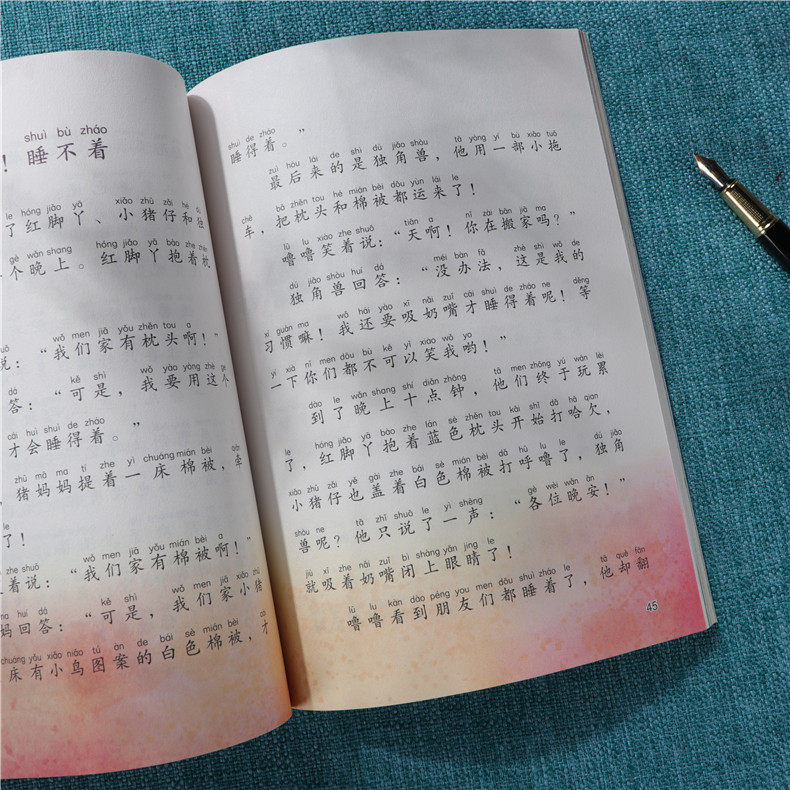 shuì bù zháo
！睡不着
le hóng jiǎo yā xiǎo zhū zǎi hé dú
了红脚丫、小猪仔和独
gè wǎn shang hóng jiǎo yā bào zhe zhěn
个晚上。红脚丫抱着枕
shuō wǒ men jiā yǒu zhěn tou a
说：“我们家有枕头啊！”
dá kě shì wǒ yào yòng zhè gè
答：“可是，我要用这个
cái huì shuì de zháo
才会睡得着。”
zhū mā ma tí zhe yì chuáng mián bèi
猪妈妈提着一床棉被，牵
le
了！
zhe shuō wǒ men jiā yǒu mián bèi a
着说：“我们家有棉被啊！”
mā huí dá kě shì wǒ men jiā xiǎo zhū
妈回答：“可是，我们家小猪
chuáng yǒu xiǎo niǎo tú àn de bái sè mián bèi cái
床有小鸟图案的白色棉被，才
shuì de zháo
睡得着。”
zuì hòu lái de shì dú jiǎo shòu tā yòng yí bù xiǎo tuō
最后来的是独角兽，他用一部小拖
chē bǎ zhěn tou hé mián bèi dōu yùn lái le
车，把枕头和棉被都运来了！
lū lu xiào zhe shuō tiān a nǐ zài bān jiā ma
噜噜笑着说：“天啊！你在搬家吗？”
dú jiǎo shòu huí dá méi bàn fǎ zhè shì wǒ de
独角兽回答：“没办法，这是我的
xí guàn ma wǒ hái yào xī nǎi zuǐ cái shuì de zháo ne děng
习惯嘛！我还要吸奶嘴才睡得着呢！等
yí xià nǐ men dōu bù kě yǐ xiào wǒ yo
一下你们都不可以笑我哟！”
dào le wǎn shang shí diǎn zhōng tā men zhōng yú wán lèi
到了晚上十点钟，他们终于玩累
le hóng jiǎo yā bào zhe lán sè zhěn tou kāi shǐ dǎ hā qian
了，红脚丫抱着蓝色枕头开始打哈欠，
xiǎo zhū zǎi yě gài zhe bái sè mián bèi dǎ hū lu le dú jiǎo
小猪仔也盖着白色棉被打呼噜了，独角
shòu ne tā zhǐ shuō le yì shēng gè wèi wǎn ān
兽呢？他只说了一声：“各位晚安！”
jiù xī zhe nǎi zuǐ bì shàng yǎn jing le
就吸着奶嘴闭上眼睛了！
lū lu kàn dào péng you men dōu shuì zháo le tā què fān
噜噜看到朋友们都睡着了，他却翻
45